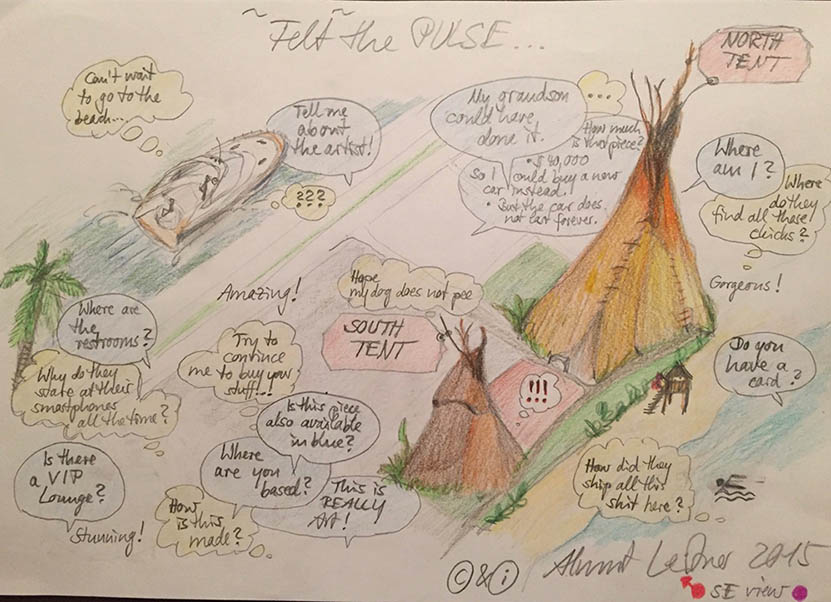 ~ Felt ~ the PULSE...
NORTH
TENT
Can't wait
to go to the
beach...
Tell me
about
the artist!
???
My grandson
could have
done it.
...
How much
is that piece?
• $ 40,000
So I could buy a new
car instead.
• But the car does
not car forever.
Where
am I?
Where
do they
find all these
chicks?
Gorgeous!
Amazing!
Hope
my dog does not pee
SOUTH
TENT
Where are
the
restrooms?
Why do they
stare at their
smartphones
all the time?
Try to
continue
me to buy your
stuff...!
!!!
Do you
have a
card?
Is this piece
also available
in blue?
Is there
a VIP
Lounge?
Where
are you
based?
This is
REALLY
Art!
How
is this
made?
Stunning!
How did they
ship all this
shit here?
© & i
2015
SE view